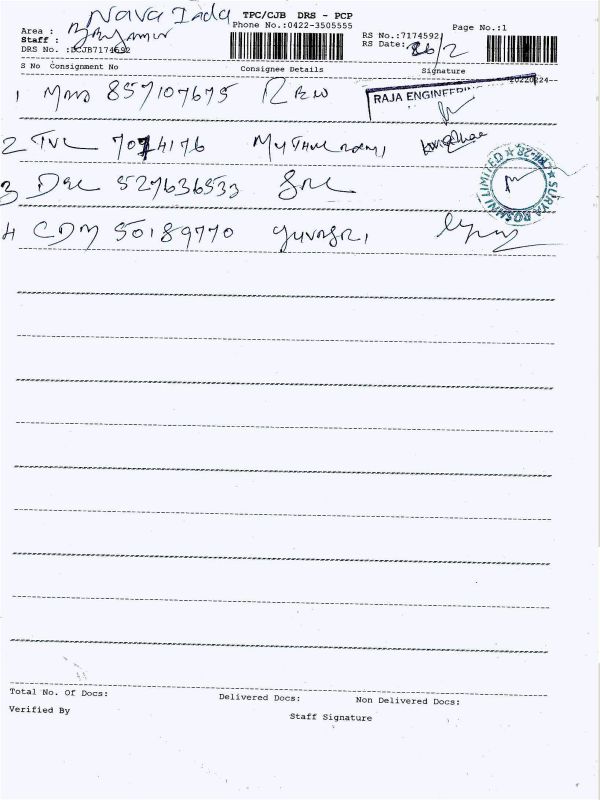 Nava Inda
TPC/CJB DRS - PCP
Page No.:1
Area :
Phone No.:0422-3505555
RS No.:7174592
Staff :
RS Date: 26/2
DRS No. :DCJB7174592
S No Consignment No Consignee Details Signature
20220224--
1 857107675
RAJA ENGINEERIN
2 TVL 7074176
3 527636533
SURYA ROSHNI LIMITED
4 CDM 50189770 yuvasri
Total No. Of Docs: Delivered Docs: Non Delivered Docs:
Verified By Staff Signature